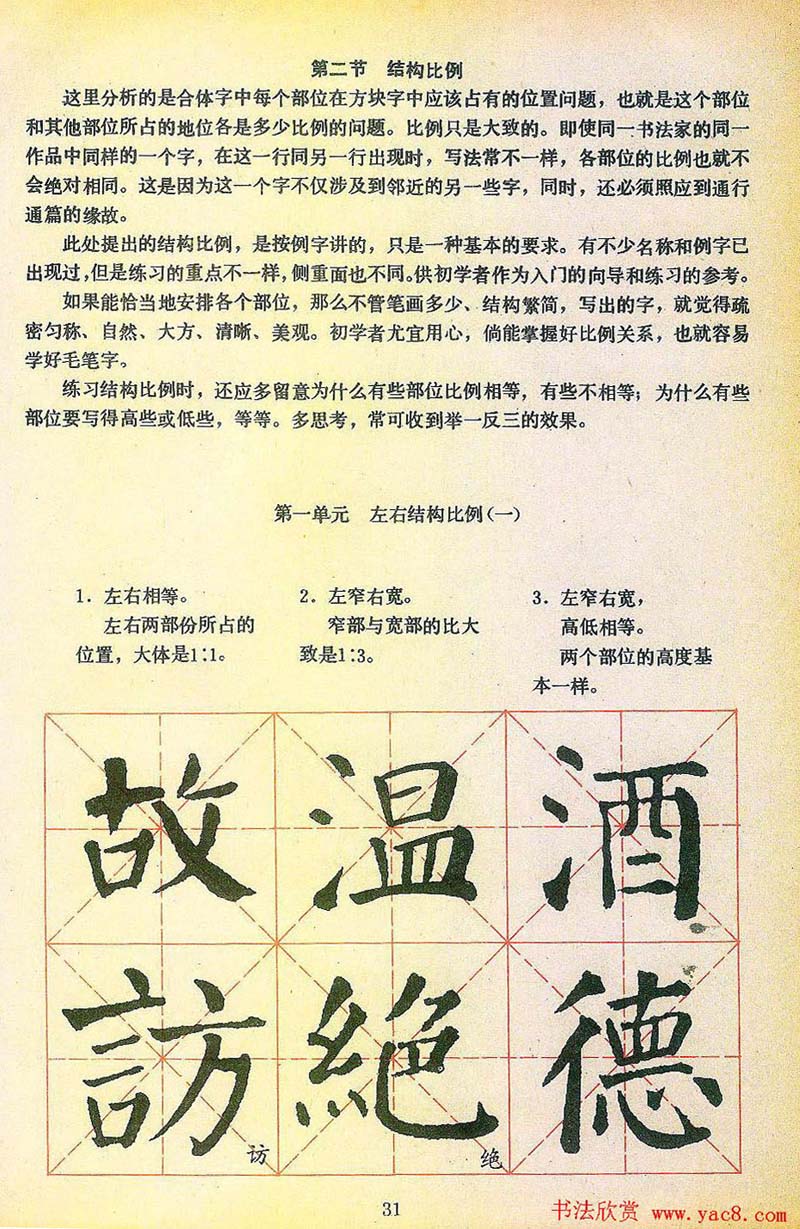 第二节 结构比例
这里分析的是合体字中每个部位在方块字中应该占有的位置问题，也就是这个部位
和其他部位所占的地位各是多少比例的问题。比例只是大致的。即使同一书法家的同一
作品中同样的一个字，在这一行同另一行出现时，写法常不一样，各部位的比例也就不
会绝对相同。这是因为这一个字不仅涉及到邻近的另一些字，同时，还必须照应到通行
通篇的缘故。
此处提出的结构比例，是按例字讲的，只是一种基本的要求。有不少名称和例字已
出现过，但是练习的重点不一样，侧重面也不同。供初学者作为入门的向导和练习的参考。
如果能恰当地安排各个部位，那么不管笔画多少、结构繁简，写出的字，就觉得疏
密匀称、自然、大方、清晰、美观。初学者尤宜用心，倘能掌握好比例关系，也就容易
学好毛笔字。
练习结构比例时，还应多留意为什么有些部位比例相等，有些不相等；为什么有些
部位要写得高些或低些，等等。多思考，常可收到举一反三的效果。
第一单元 左右结构比例(一)
1．左右相等。
左右两部份所占的
位置，大体是1∶1。
2．左窄右宽。
窄部与宽部的比大
致是1∶3。
3．左窄右宽，
高低相等。
两个部位的高度基
本一样。
故 温 酒
訪 絕 德
访 绝
31
书法欣赏 www.yac8.com